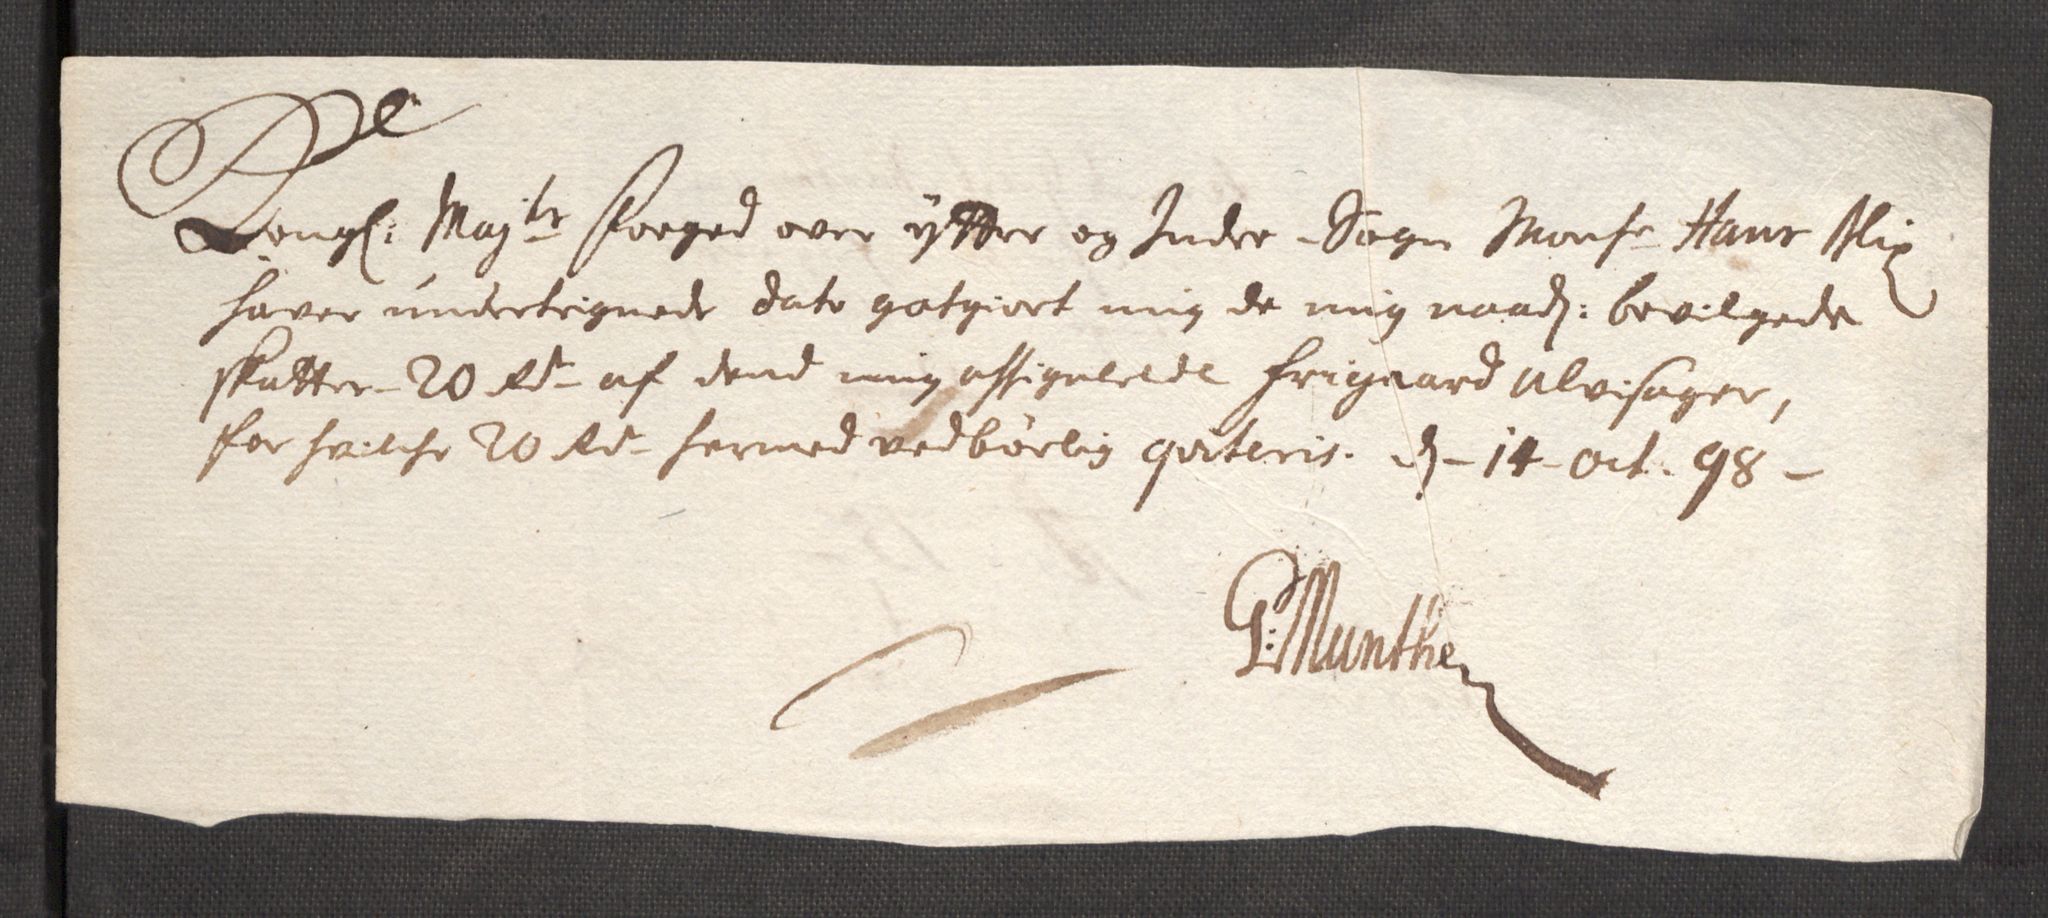 Kongl: Maj:ts Foeged over ÿtter og Inder Sogn Monsr Hans Blix
haver underteignede dato gotgiort mig de mig naad: bevilgede
skatter 20 Rdr af dend mig assignerede frigaard Alvisager,
for hvilche 20 Rdr hermed vedbörlig qviteris. d 14 Oct. 98
G: Munthe